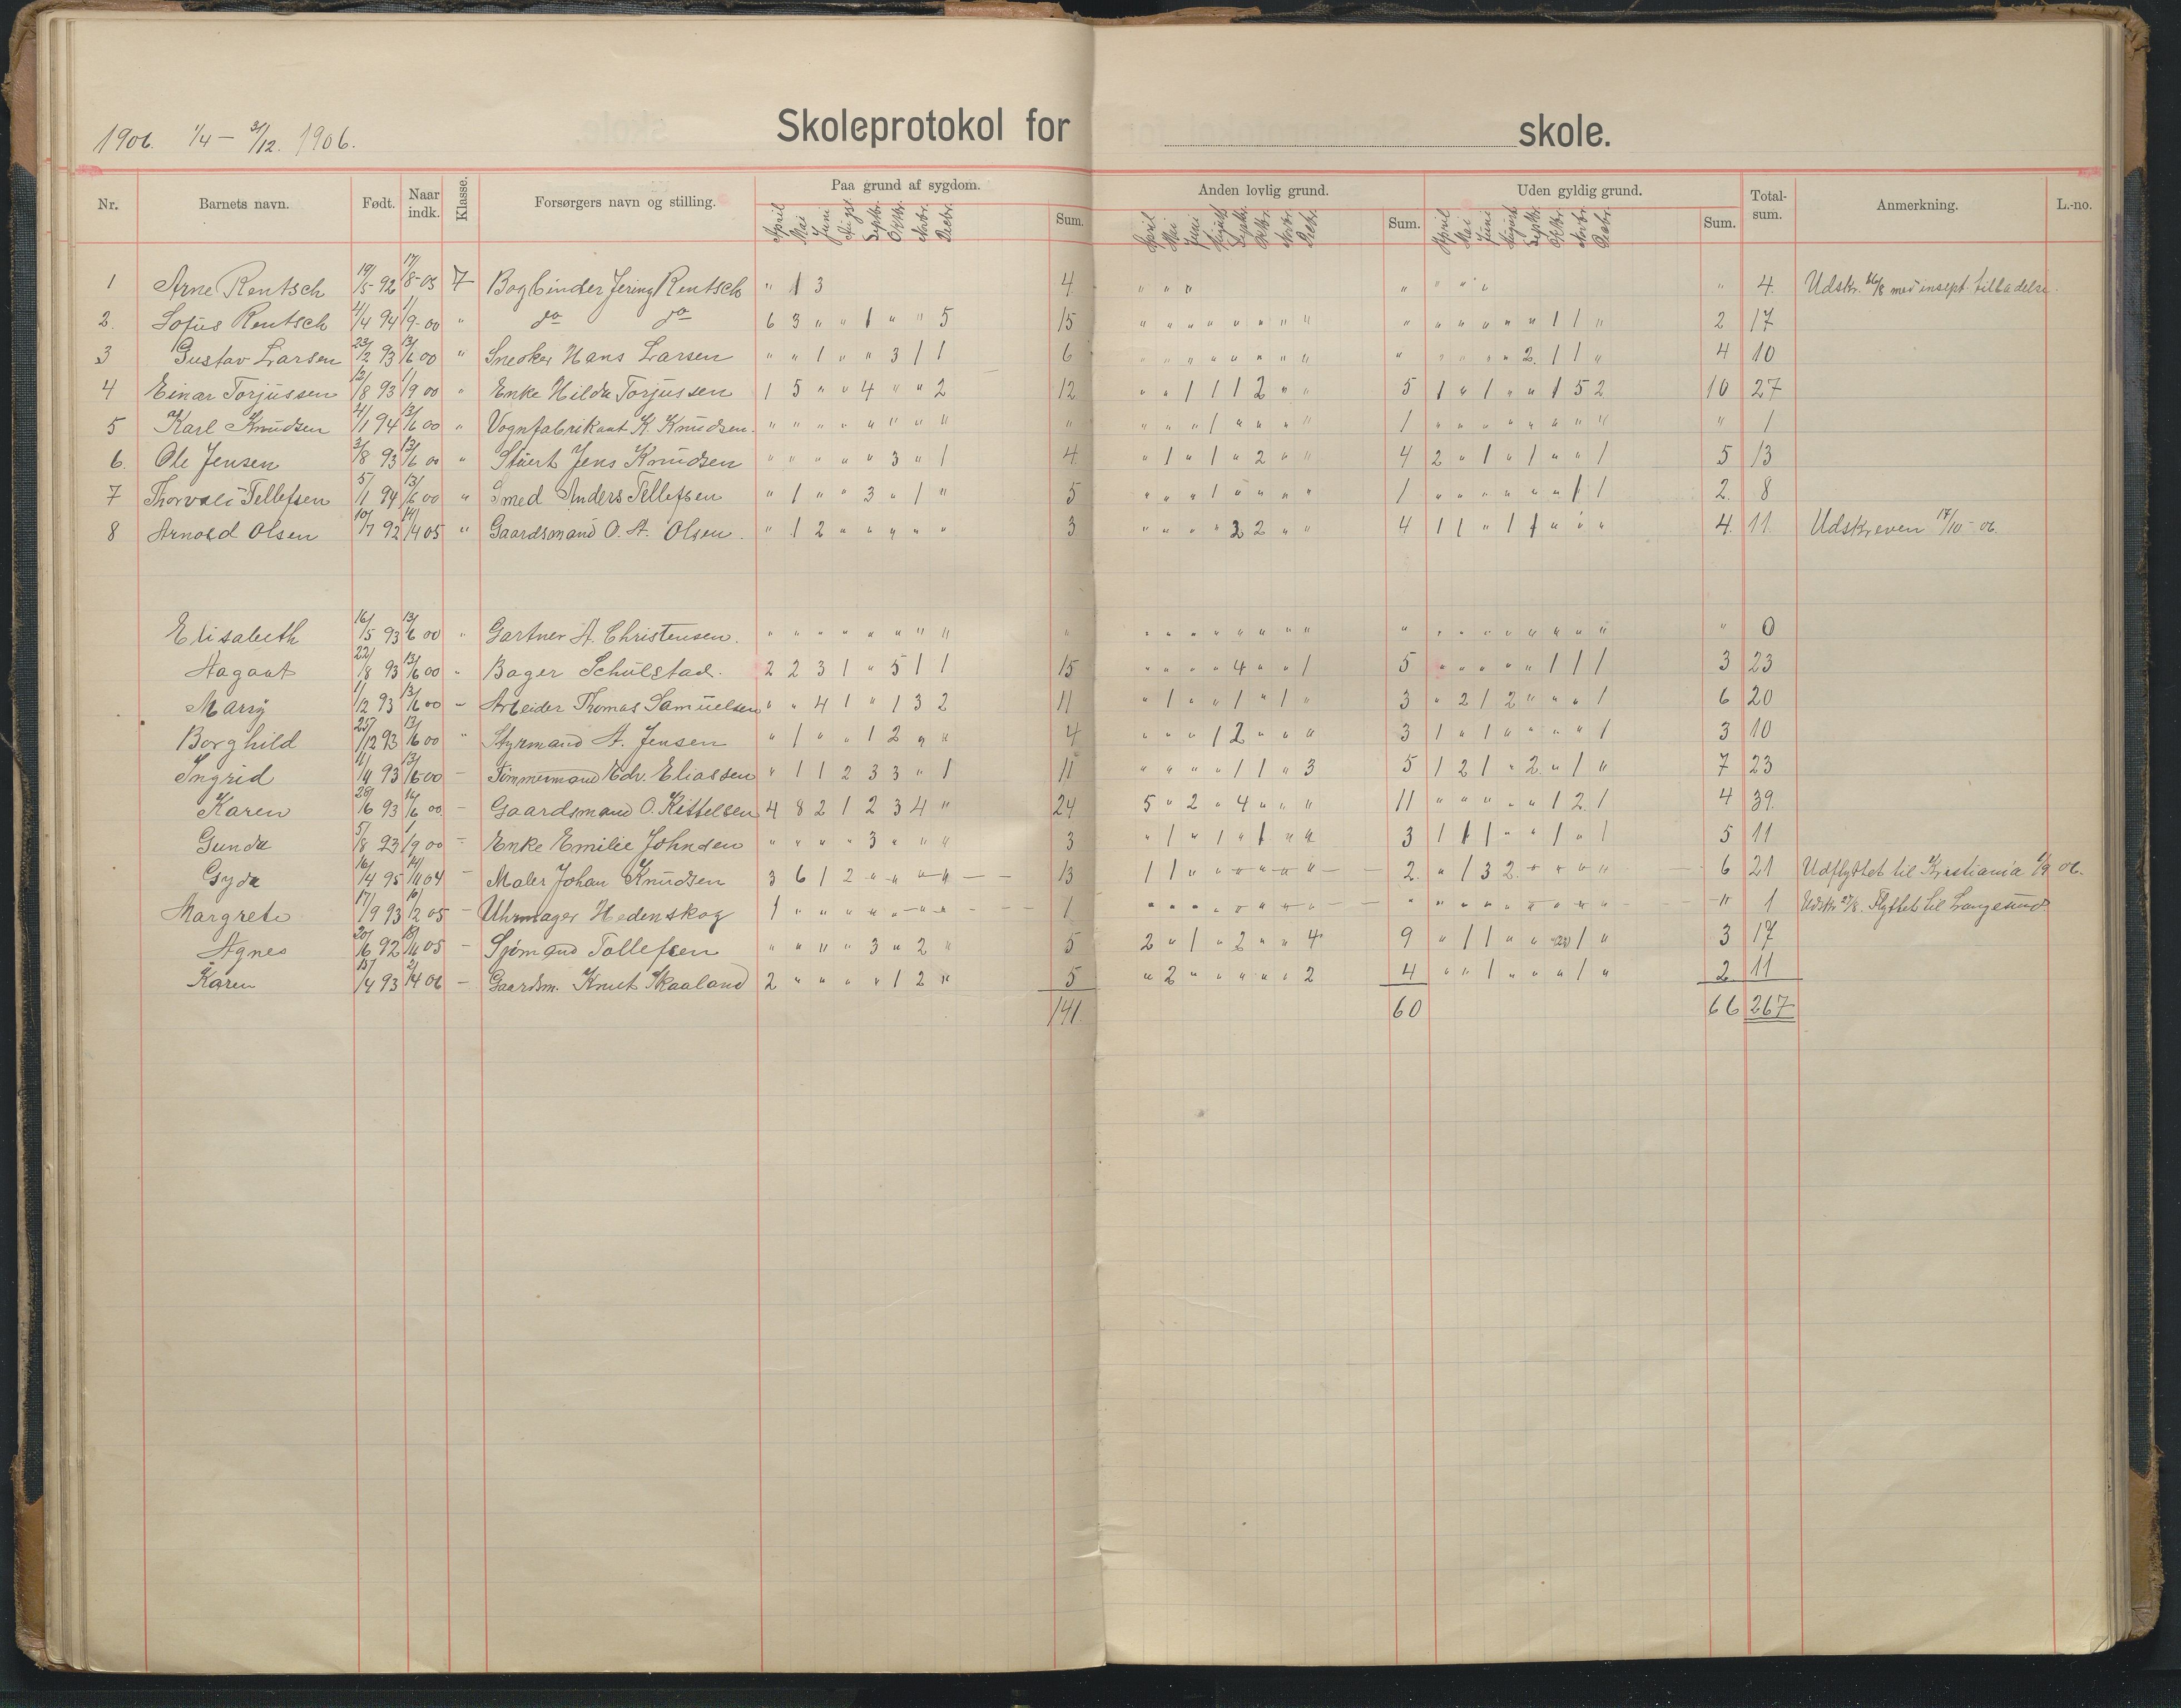 Skoleprotokol for skole.
1906. 1/4 – 31/12. 1906.
Nr. Barnets navn. Født. Naar indk. Klasse. Forsørgers navn og stilling. Paa grund af sygdom. Sum. Anden lovlig grund. Sum. Uden gyldig grund. Sum. Total-sum. Anmerkning. L.-no.
April Mai Juni Aug. Septbr. Oktbr. Novbr. Decbr. April Mai Juni August Septbr. Oktbr. Novbr. Decbr. April Mai Juni August Septbr. Oktbr. Novbr. Decbr.
1 Arne Rentsch 19/5-92 17/8-03 7 Bogbinder Jering Rentsch " 1 3 4 " " " " " " " " 4. Udskr. 26/8 med insept. tilladelse.
2. Sofus Rentsch 4/4 94 1/9-00 " do do 6 3 " " 1 " " 5 15 " " " " " " " " " " " " " " 1 1 " 2 17
3 Gustav Larsen 23/2 93 13/6 00 " Snedker Hans Larsen " " 1 " " 3 1 1 6 " " " " " " " " " " " " " 2. 1 1 " 4 10
4 Einar Torjussen 12/8 93 1/9 00 " Enke Hilda Torjussen 1 5 " " 4 " " 2 12 " " 1 1 1 2 " " 5 1 " 1 " " 1 5 2 10 27
5 Karl Knudsen 4/1 94 13/6 00 " Vognfabrikant K. Knudsen. " " " " " " " " " " " " 1 " " " " 1 " " " " " " " " " 1
6. Ole Jensen 3/8 93 13/6 00 " Stuert Jens Knudsen " " " " " 3 " 1 4 " 1 " 1 " 2 " " 4 2 " 1 " 1 " " 1 5 13
7 Thorvald Tellefsen 5/1 94 13/6 00 " Smed Anders Tellefsen " 1 " " 3 " 1 " 5 " " " 1 " " " " 1 " " " " " " 1 1 2. 8
8 Arnold Olsen 10/7 92 19/4 05 " Gaardsmand O. A. Olsen. " 1 2 " " " " " 3 " " " " 3 2 " " 4 1 1 " 1 1 " " " 4. 11. Udskreven 17/10-06.
Elisabeth 16/5 93 13/6 00 " Gartner A. Christensen. " " " " " " " " " " " " " " " " " " " " " " " " " " " 0
Aagaat 22/8 93 13/6 00 " Bager Schulstad. 2 2 3 1 " 5 1 1 15 " " " " 4 " " 1 5 " " " " " 1 1 1 3 23
Mary 1/2 93 13/6 00 " Arbeider Thomas Samuelsen " " 4 1 " 1 3 2 11 " 1 " " 1 " 1 " 3 " 2 1 2 " " " 1 6 20
Borghild 25/12 93 13/6 00 " Styrmand A. Jensen " 1 " " 1 2 " " 4 " " " 1 2 " " " 3 1 " 1 " " " " 1 3 10
Ingrid 11/4 93 13/6 00 – Tømmermand Edv. Eliassen " 1 1 2 3 3 " 1 11 " " " " 1 1 " 3 5 1 2 1 " 2 " 1 " 7 23
Karen 28/6 93 14/6 00 – Gaardsmand O. Kittelsen 4 8 2 1 2 3 4 " 24 5 " 2 " 4 " " " 11 " " " " " 1 2. 1 4 39.
Gunda 5/8 93 1/9 00 – Enke Emilie Johnsen " " " " 3 " " " 3 " 1 " 1 " 1 " " 3 1 1 1 " " 1 " 1 5 11
Gyda 16/4 95 14/11 04 – Maler Johan Knudsen 3 6 1 2 " " " " – – 13 1 1 " " " " " " – – 2. " 1 3 2. " " " " – 6 21 Udflyttet til Kristiania 1/9 06.
Margrete 17/9 93 10/2 05 – Uhrmager Hedenskog 1 " " " " " " " – – 1 " " " " " " " " – – " " " " " " " " " – " 1 Udskr 27/8. Flyttet til Langesund.
Agnes 20/6 92 18/11 05 – Sjømand Tollefsen " " " " 3 " 2 " 5 2 " 1 " 2 " " 4 9 " 1 1 " " " 1 " 3 17
Karen 15/4 93 2/4 06 – Gaardsm. Knut Skaaland 2 " " " " 1 2 " 5 " 2 " " " " " 2 4 " " 1 " " " 1 " 2 11
141. 60 66 267